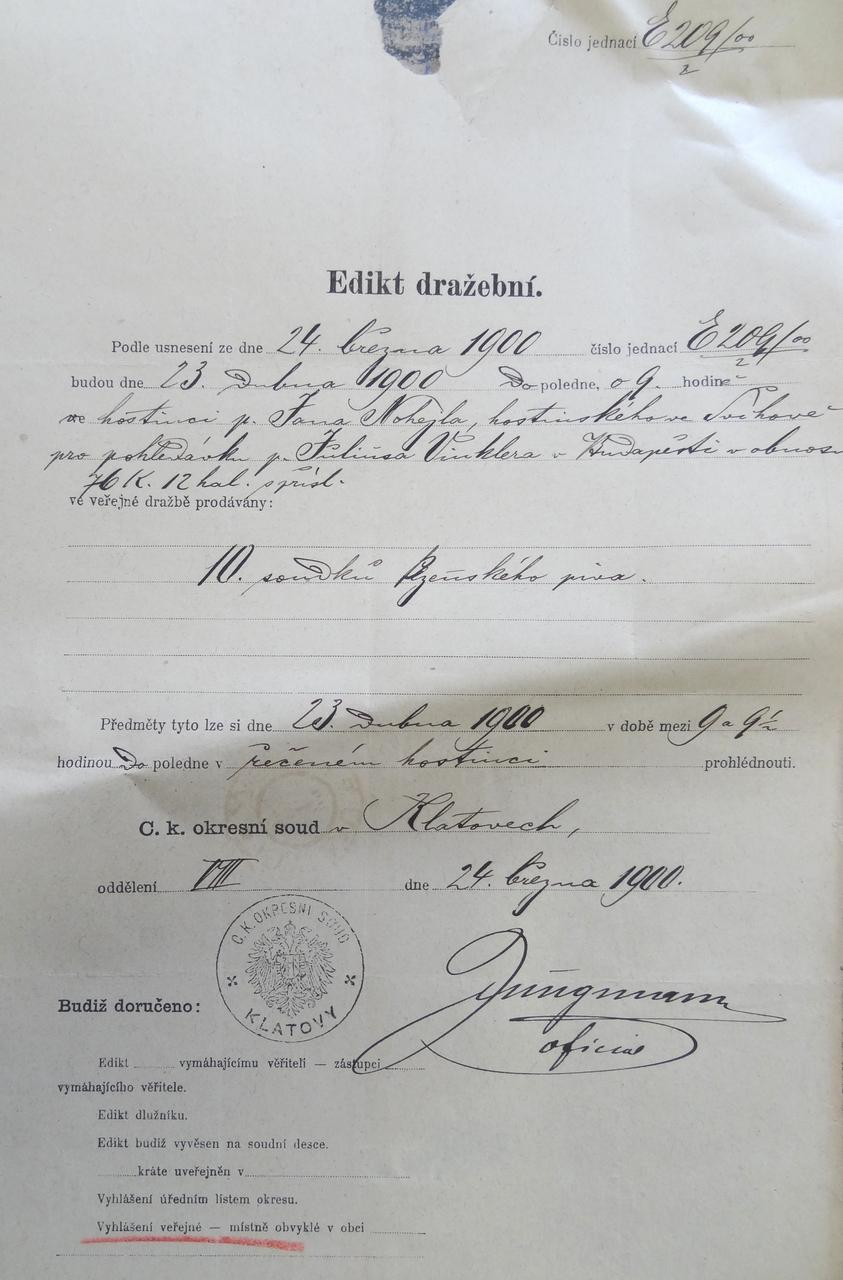 Číslo jednací E 209/00
2
Edikt dražební.
Podle usnesení ze dne 24. března 1900 číslo jednací E 209/00
2
budou dne 23. Dubna 1900 Do poledne, o 9. hodině
ve hostinci p. Jana Nohejla, hostinského ve Švihově
pro pohledávku p. Juliusa Vinklera v Budapešti v obnosu
76 K. 12 hal. s přísl.
ve veřejné dražbě prodávány:
10. soudků Plzeňského piva.
Předměty tyto lze si dne 23. Dubna 1900 v době mezi 9 a 9½
hodinou Do poledne v řečeném hostinci prohlédnouti.
C. k. okresní soud v Klatovech,
oddělení VIII dne 24. března 1900.
C. K. OKRESNI SOUD
KLATOVY
Jungmann
oficial
Budiž doručeno:
Edikt vymáhajícímu věřiteli — zástupci
vymáhajícího věřitele.
Edikt dlužníku.
Edikt budiž vyvěsen na soudní desce.
kráte uveřejněn v
Vyhlášení úředním listem okresu.
Vyhlášení veřejné — místně obvyklé v obci